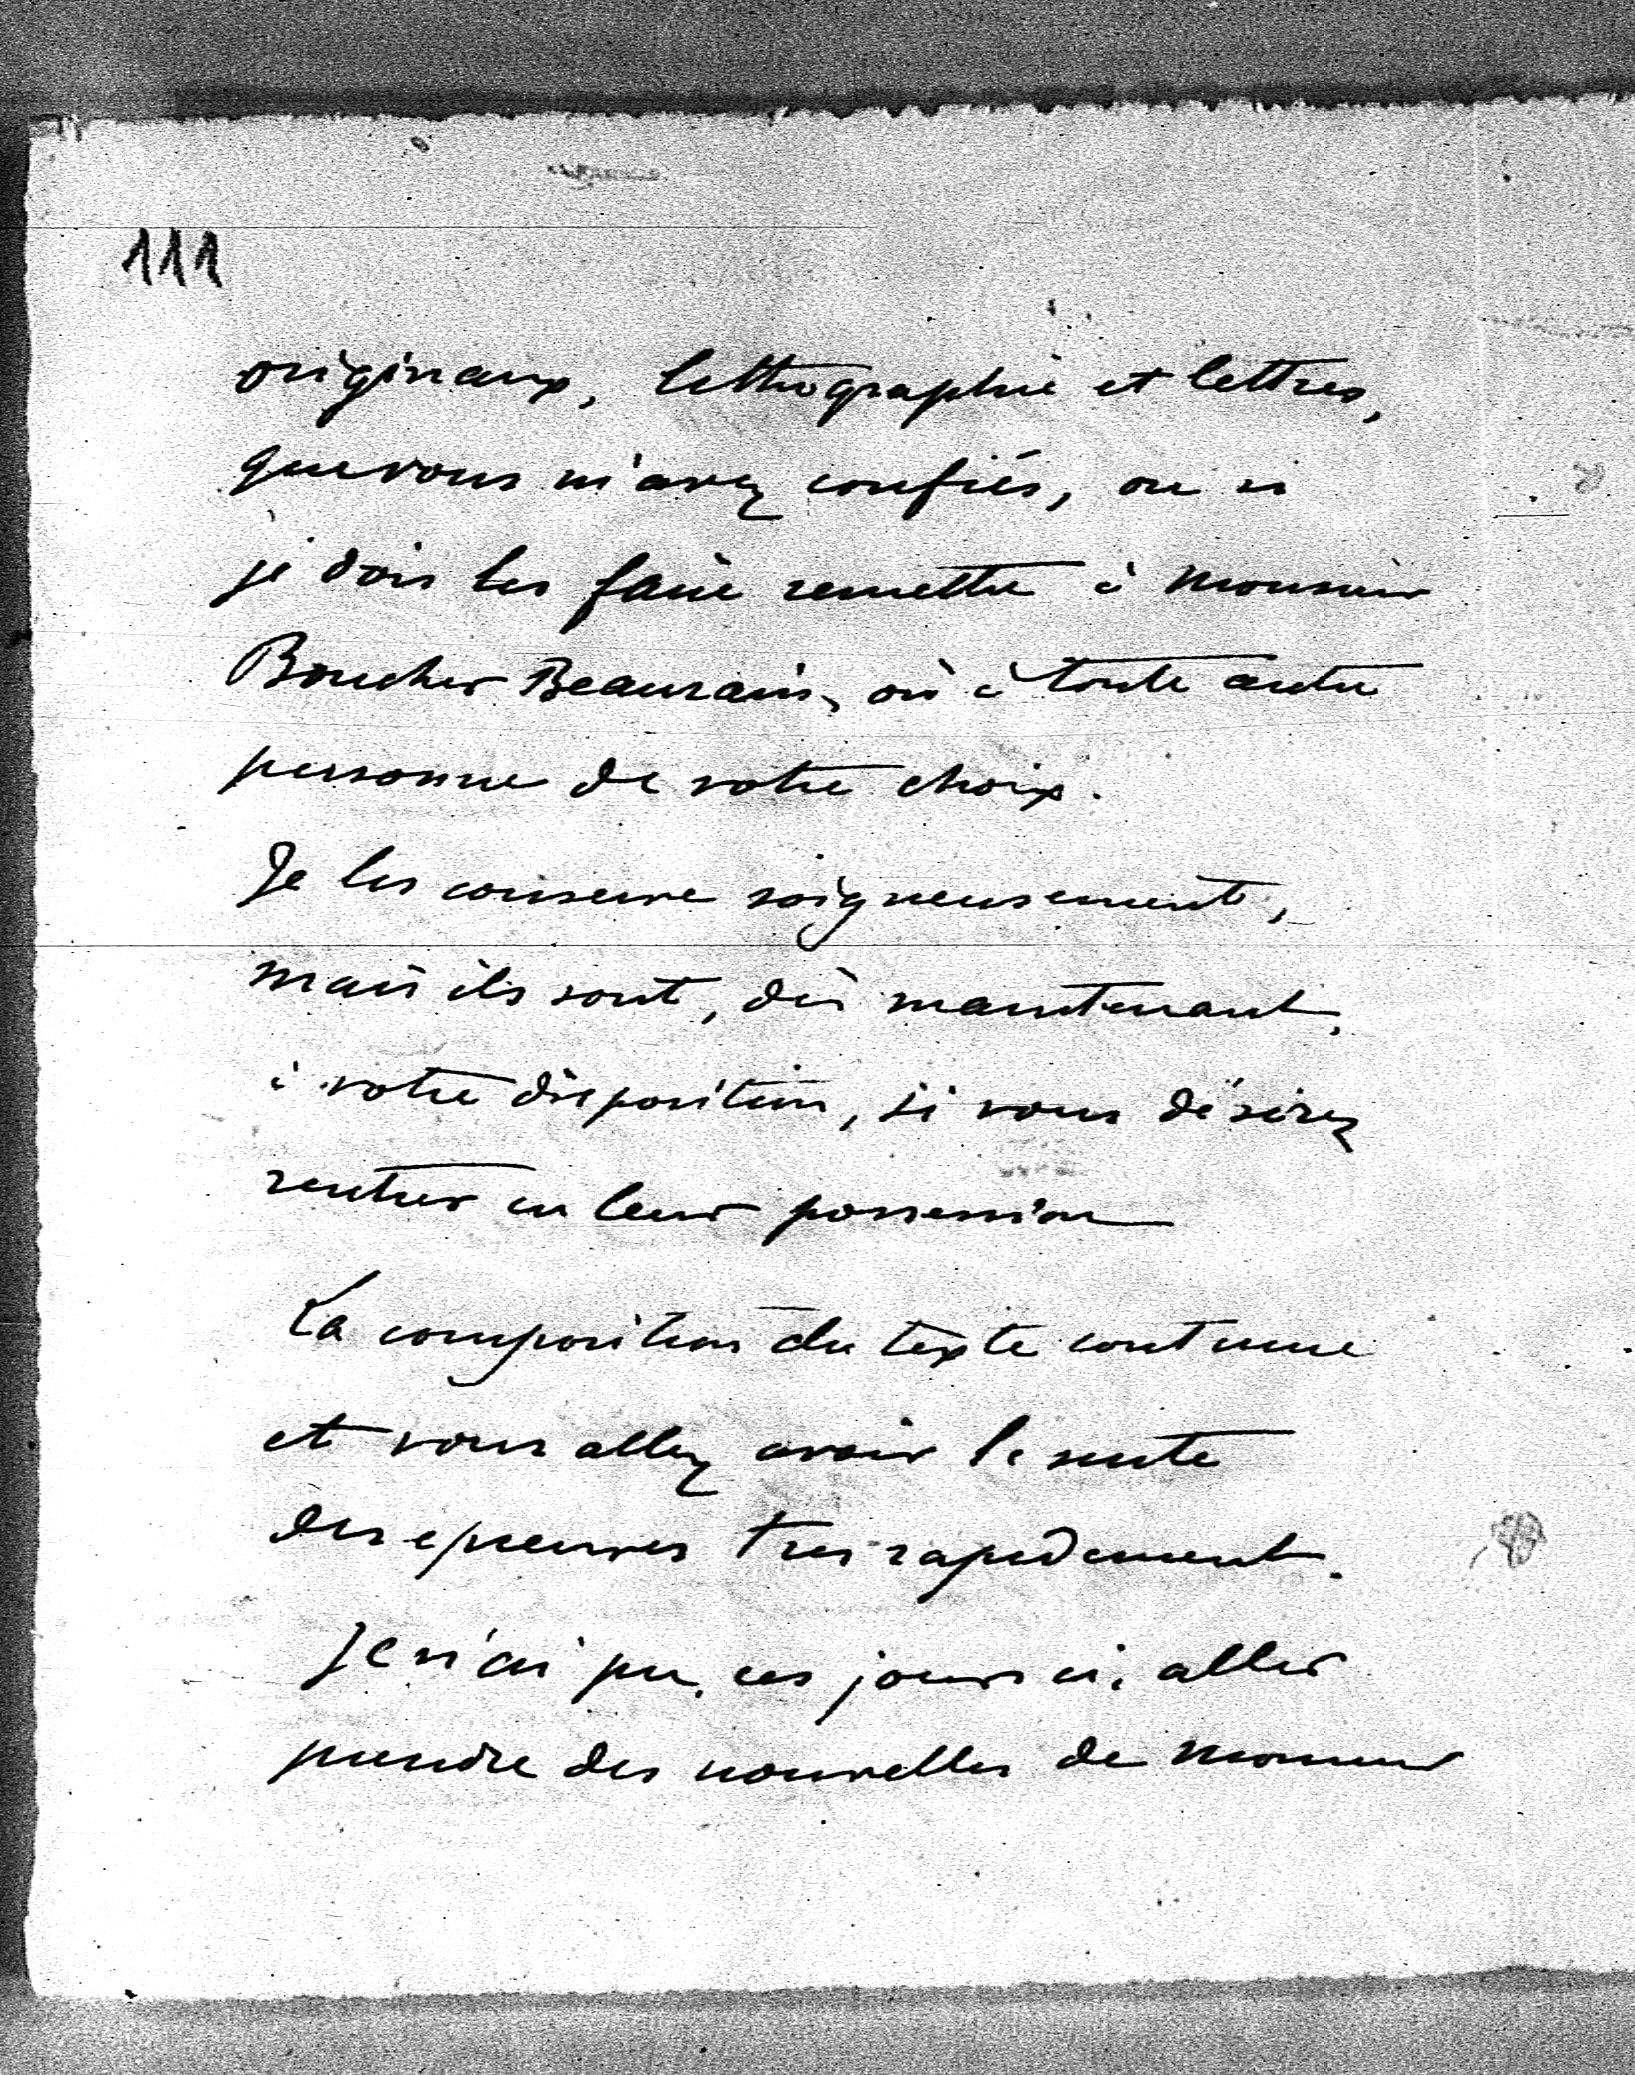 111
originaux, lithographie et lettres,
que vous m'avez confiés, ou si
je dois les faire remettre à Monsieur
Boucher Beaurain, où à toute autre
personne de votre choix.
Je les conserve soigneusement,
mais ils sont, dès maintenant,
à votre disposition, si vous désirez
rentrer en leur possession
La composition du texte continue
et vous allez avoir la suite
des epreuves tres rapidement.
Je n'ai pu, ces jours ci, aller
prendre des nouvelles de Monsieur